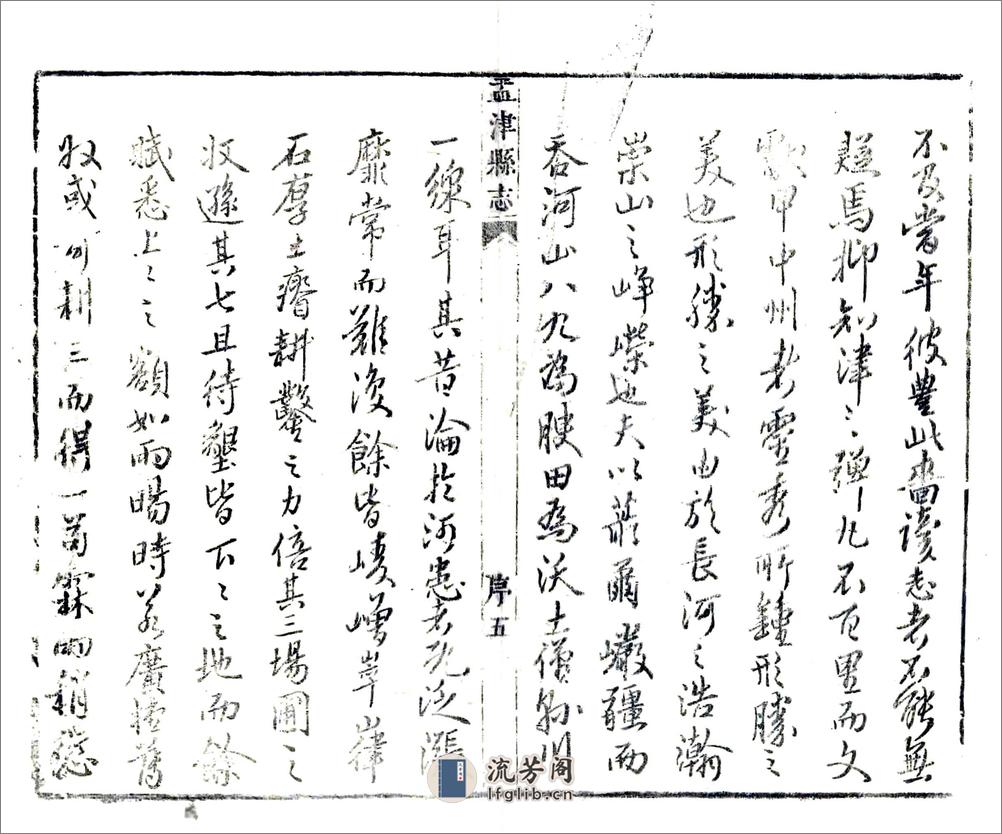 不及當年彼豐此嗇讀志者不能無
疑焉抑知津之疆九不百里而文
獻甲中州者靈秀所鍾形勝之
美也形勝之美由於長河之浩瀚
崇山之崢嶸也夫以蕞爾巖疆而
吞河山八九為腴田為沃土僅
孟津縣志
序 五
一線耳其昔淪於河患者既泛漲
靡常而難復餘皆崚嶒岸嵂
石厚土瘠耕鑿之力倍其三場圃之
收遜其七且待墾皆下下之地而餘
賦悉上上之額如雨暘時若廣種薄
收或耕三而得一苟霖雨稍愆
流芳阁
lfglib.cn